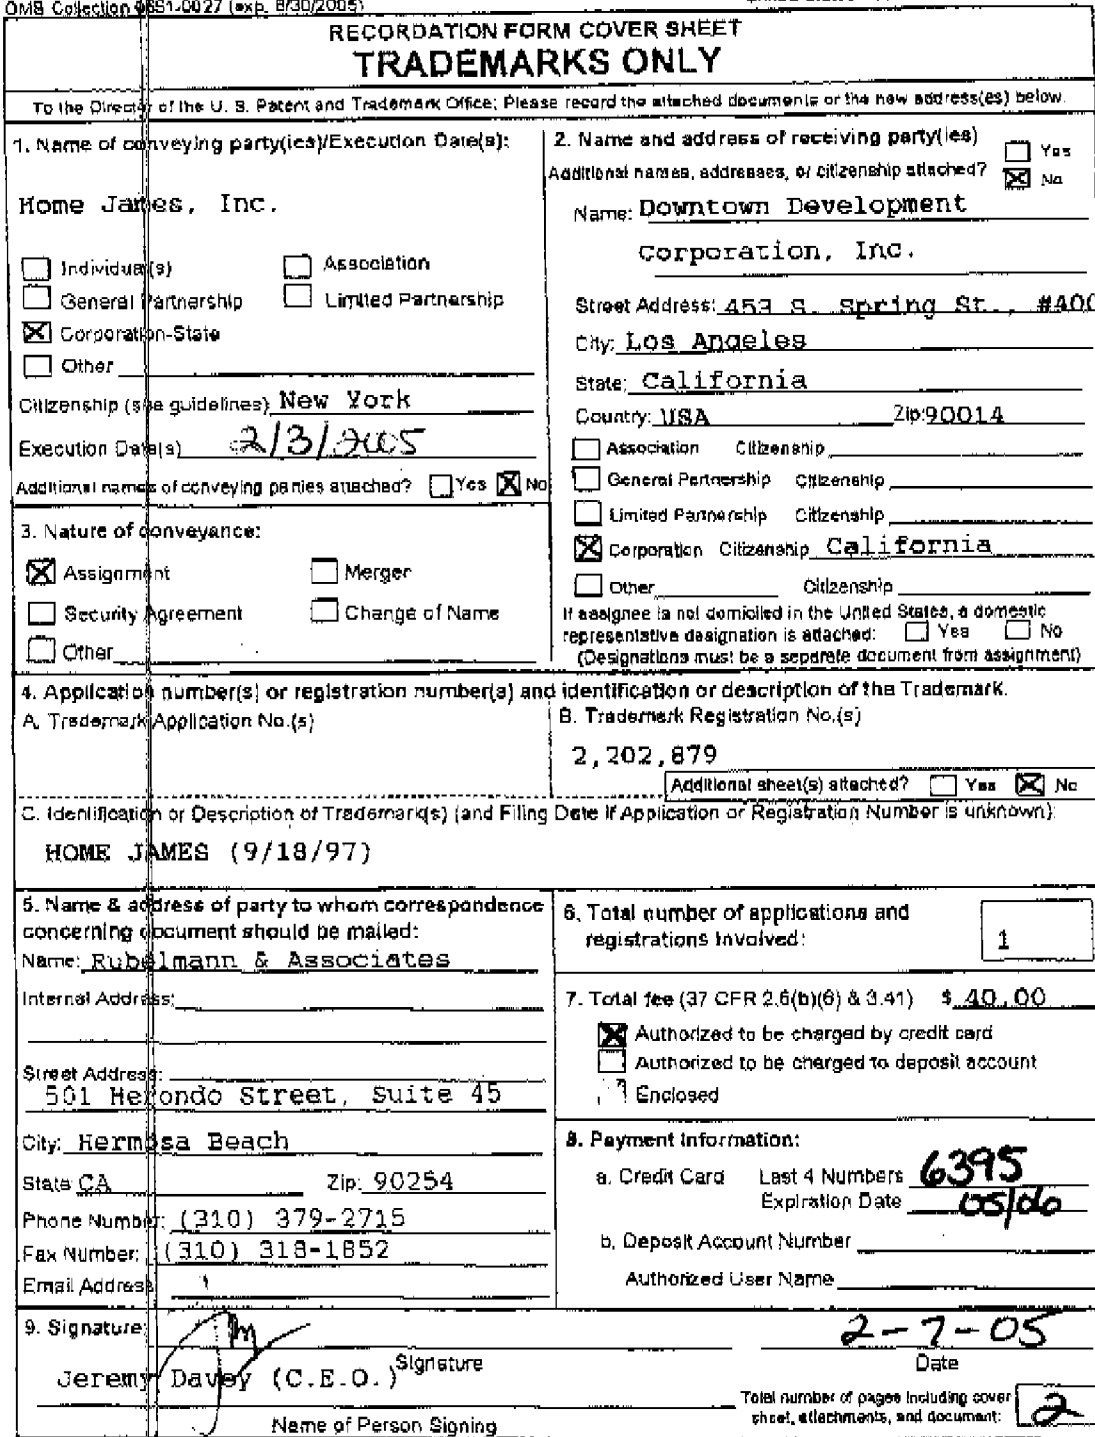 OMB Collection 0651-0027 (exp. 6/30/2005)
RECORDATION FORM COVER SHEET
TRADEMARKS ONLY
To the Director of the U. S. Patent and Trademark Office: Please record the attached documents or the new address(es) below.
1. Name of conveying party(ies)/Execution Date(s):
Home James, Inc.
Individual(s)
Association
General Partnership
Limited Partnership
Corporation-State
Other
Citizenship (see guidelines) New York
Execution Date(s) 2/3/2005
Additional names of conveying parties attached? Yes No
2. Name and address of receiving party(ies)
Additional names, addresses, or citizenship attached? Yes No
Name: Downtown Development
Corporation, Inc.
Street Address: 453 S. Spring St., #400
City: Los Angeles
State: California
Country: USA Zip: 90014
Association Citizenship
General Partnership Citizenship
Limited Partnership Citizenship
Corporation Citizenship California
Other Citizenship
If assignee is not domiciled in the United States, a domestic
representative designation is attached: Yes No
(Designations must be a separate document from assignment)
3. Nature of conveyance:
Assignment
Merger
Security Agreement
Change of Name
Other
4. Application number(s) or registration number(s) and identification or description of the Trademark.
A. Trademark Application No.(s)
B. Trademark Registration No.(s)
2,202,879
Additional sheet(s) attached? Yes No
C. Identification or Description of Trademark(s) (and Filing Date if Application or Registration Number is unknown):
HOME JAMES (9/18/97)
5. Name & address of party to whom correspondence
concerning document should be mailed:
Name: Rubelmann & Associates
Internal Address:
Street Address:
501 Herondo Street, Suite 45
City: Hermosa Beach
State CA Zip: 90254
Phone Number: (310) 379-2715
Fax Number: (310) 318-1852
Email Address
6. Total number of applications and
registrations involved: 1
7. Total fee (37 CFR 2.6(b)(6) & 3.41) $ 40.00
Authorized to be charged by credit card
Authorized to be charged to deposit account
Enclosed
8. Payment Information:
a. Credit Card Last 4 Numbers 6395
Expiration Date 05/06
b. Deposit Account Number
Authorized User Name
9. Signature:
2-7-05
Signature
Date
Jeremy Davey (C.E.O.)
Name of Person Signing
Total number of pages including cover
sheet, attachments, and document: 2